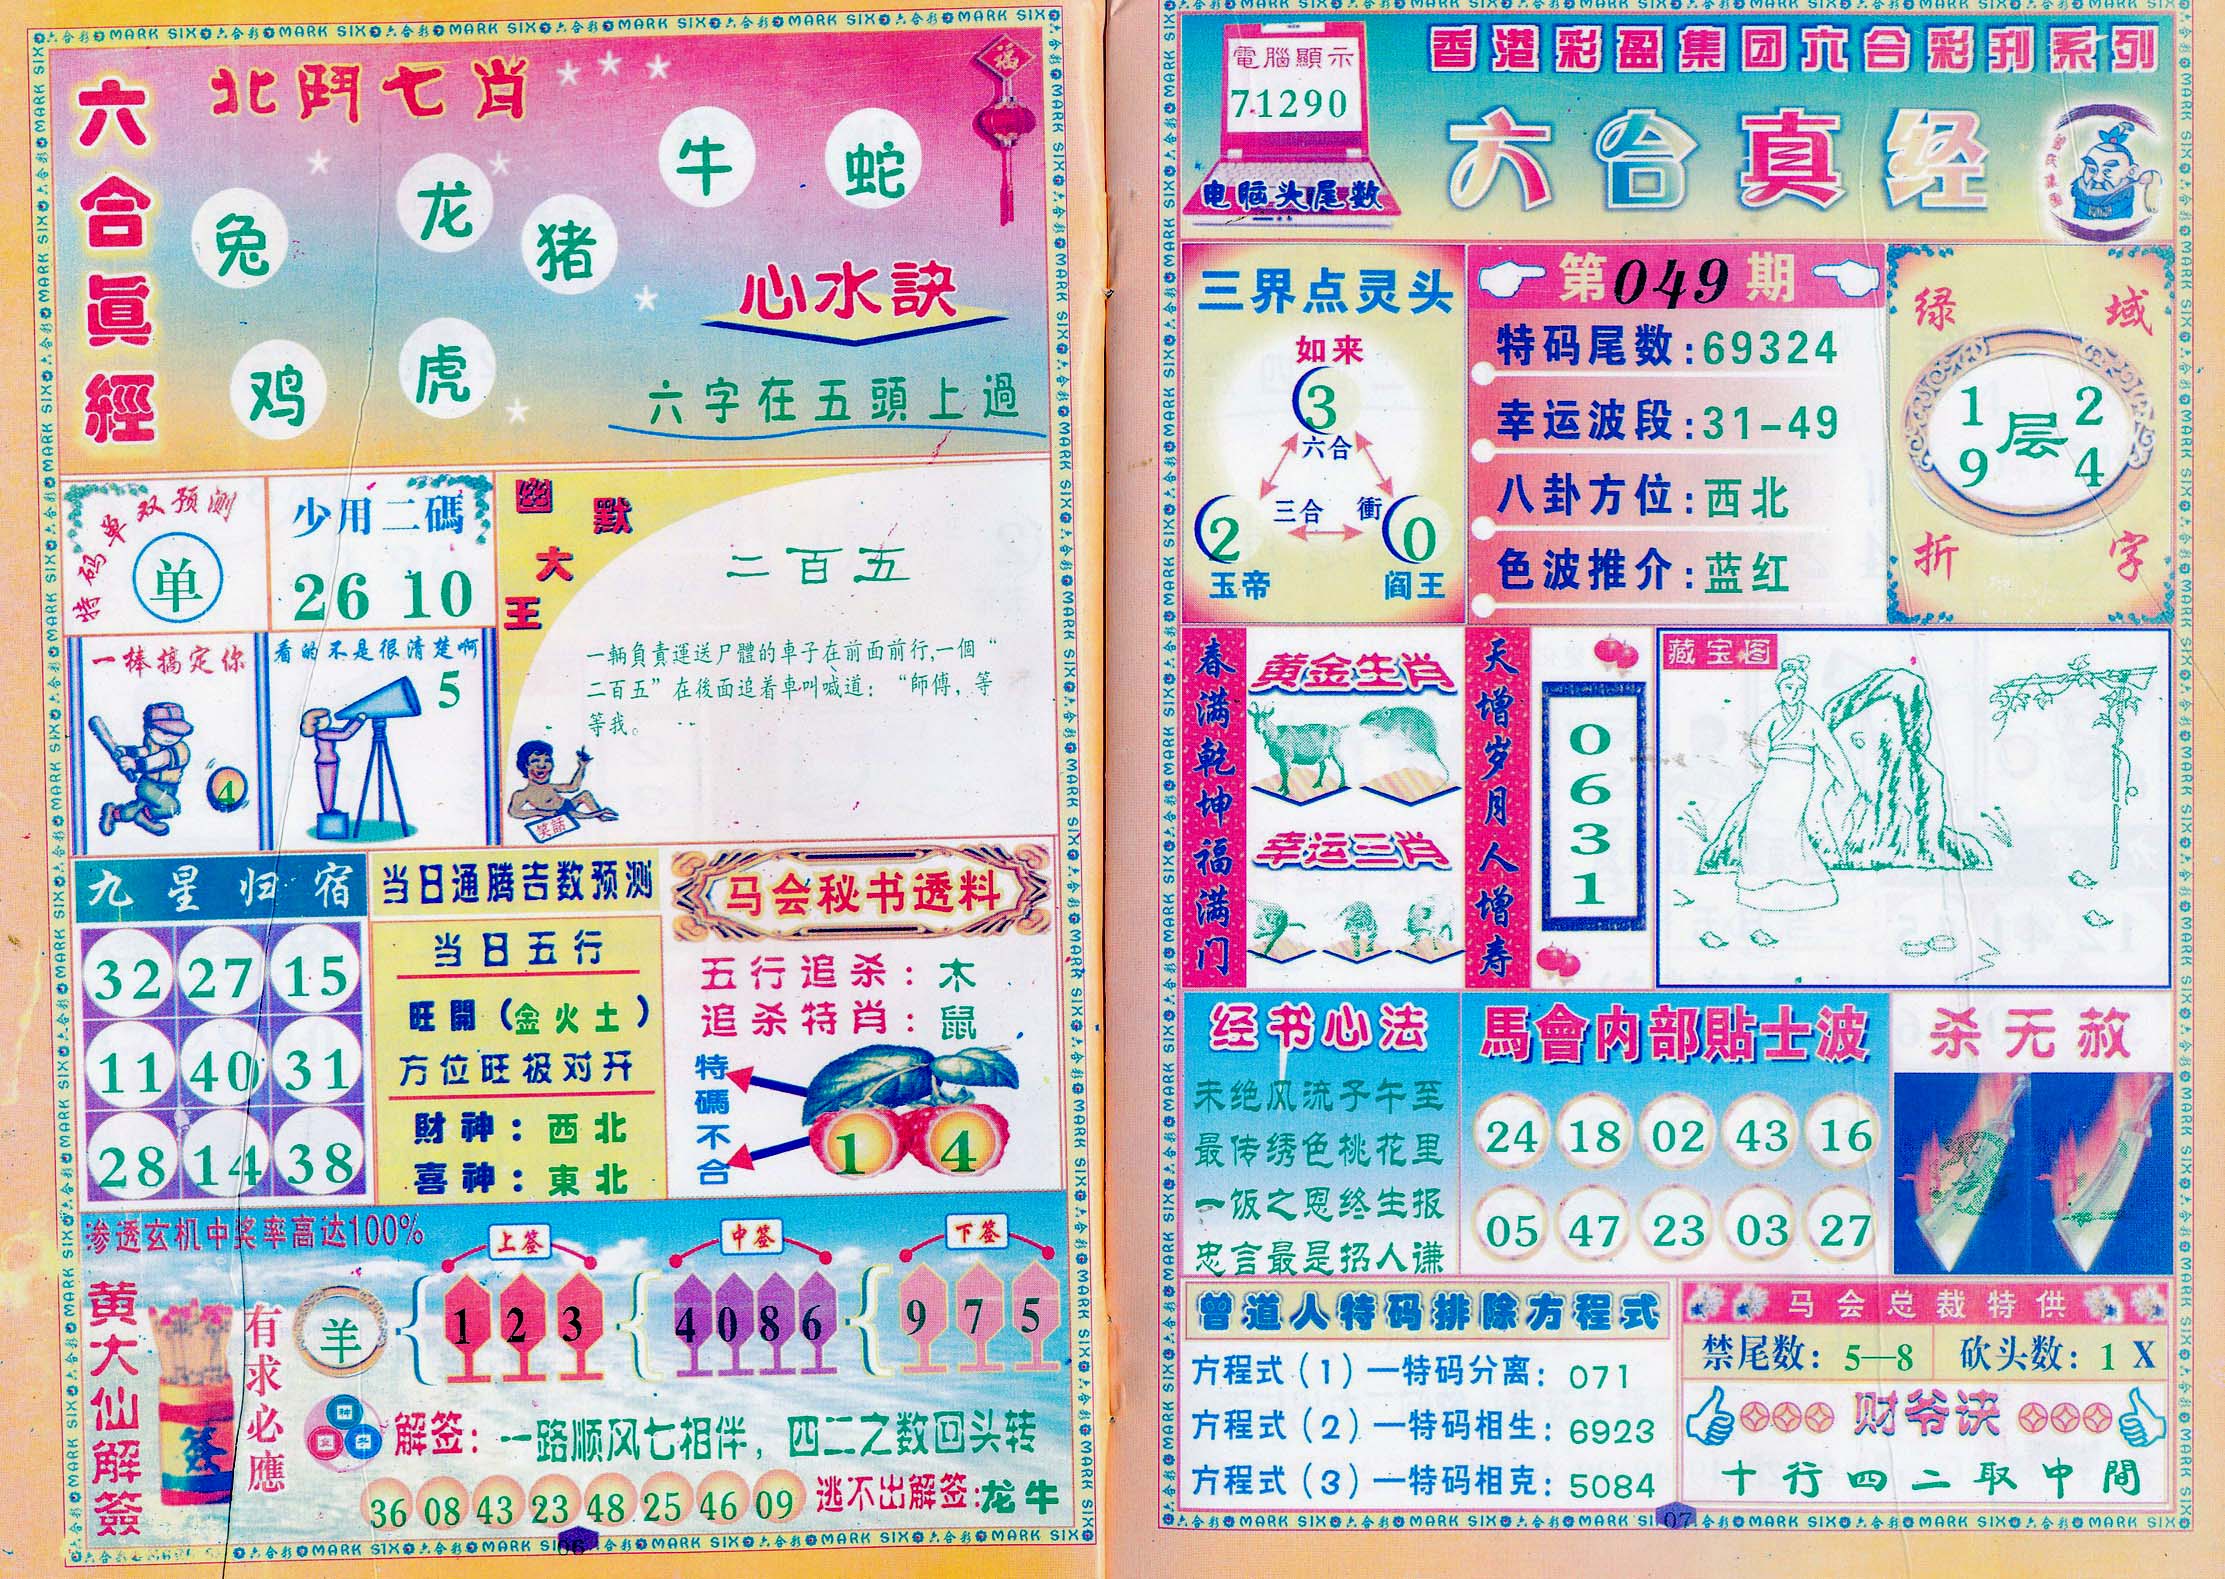 六合真經
北鬥七肖
兔
龙
猪
牛
蛇
鸡
虎
福
心水訣
六字在五頭上過
特码单双预测
单
少用二碼
26 10
一棒搞定你
4
看的不是很清楚啊
5
幽默大王
二百五
一輛負責運送尸體的車子在前面前行,一個“
二百五”在後面追着車叫喊道：“師傅，等
等我。
笑話
九星归宿
32 27 15
11 40 31
28 14 38
当日通腾吉数预测
当日五行
旺開(金火土)
方位旺极对开
財神：西北
喜神：東北
马会秘书透料
五行追杀：木
追杀特肖：鼠
特碼不合
1 4
渗透玄机中奖率高达100%
黄大仙解簽
有求必應
羊
上签
1 2 3
中签
4 0 8 6
下签
9 7 5
解签：一路顺风七相伴，四二之数回头转
36 08 43 23 48 25 46 09
逃不出解签:龙牛
06
電腦顯示
71290
电脑头尾数
香港彩盈集团六合彩刊系列
六合真经
三界点灵头
如来
3
六合
三合
衝
2
0
玉帝
阎王
第049期
特码尾数:69324
幸运波段:31-49
八卦方位:西北
色波推介:蓝红
绿域折字
1 2
层
9 4
春满乾坤福满门
黄金生肖
幸运三肖
天增岁月人增寿
0631
藏宝图
经书心法
未绝风流子午至
最传绣色桃花里
一饭之恩终生报
忠言最是招人谦
馬會内部貼士波
24 18 02 43 16
05 47 23 03 27
杀无赦
曾道人特码排除方程式
方程式(1)一特码分离：071
方程式(2)一特码相生：6923
方程式(3)一特码相克：5084
马会总裁特供
禁尾数：5—8
砍头数：1 X
财爷诀
十行四二取中間
07
MARK SIX 六合彩